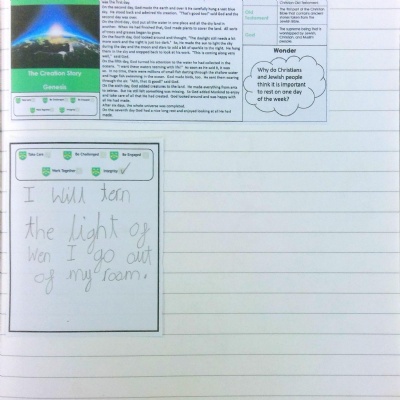 was the first day.
On the second day, God made the earth and over it he carefully hung a vast blue
sky. He stood back and admired his creation. "That's good too!" said God and the
second day was over.
On the third day, God put all the water in one place and all the dry land in
another. When he had finished that, God made plants to cover the land. All sorts
of trees and grasses began to grow.
On the fourth day, God looked around and thought, "The daylight still needs a bit
more work and the night is just too dark." So, he made the sun to light the sky
during the day and the moon and stars to add a bit of sparkle to the night. He hung
them in the sky and stepped back to look at his work. "This is coming along very
well," said God.
On the fifth day, God turned his attention to the water he had collected in the
oceans. "I want these waters teeming with life!" As soon as he said it, it was
so. In no time, there were millions of small fish darting through the shallow water
and huge fish swimming in the ocean. God made birds, too. He sent them soaring
through the air. "Ahh, that IS good!" said God.
On the sixth day, God added creatures to the land. He made everything from ants
to zebras. But he still felt something was missing. So God added Mankind to enjoy
and take care of all that he had created. God looked around and was happy with
all he had made.
After six days, the whole universe was completed.
On the seventh day God had a nice long rest and enjoyed looking at all He had
made.
The Creation Story
Genesis
Old
Testament
God
Wonder
Why do Christians
and Jewish people
think it is important
to rest on one day
of the week?
Take Care
Be Challenged
Be Engaged
Work Together
Integrity
I will tern
the light of
Wen I go out
of my room.